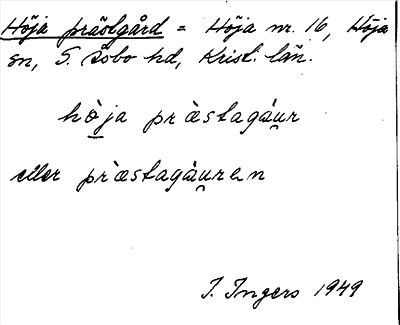 Höja prästgård = Höja nr. 16, Höja
sn, S. Åsbo hd, Krist. län.
hò̠ja pràstagáu̯r
eller præ̀stagáu̯ren
I. Ingers 1949